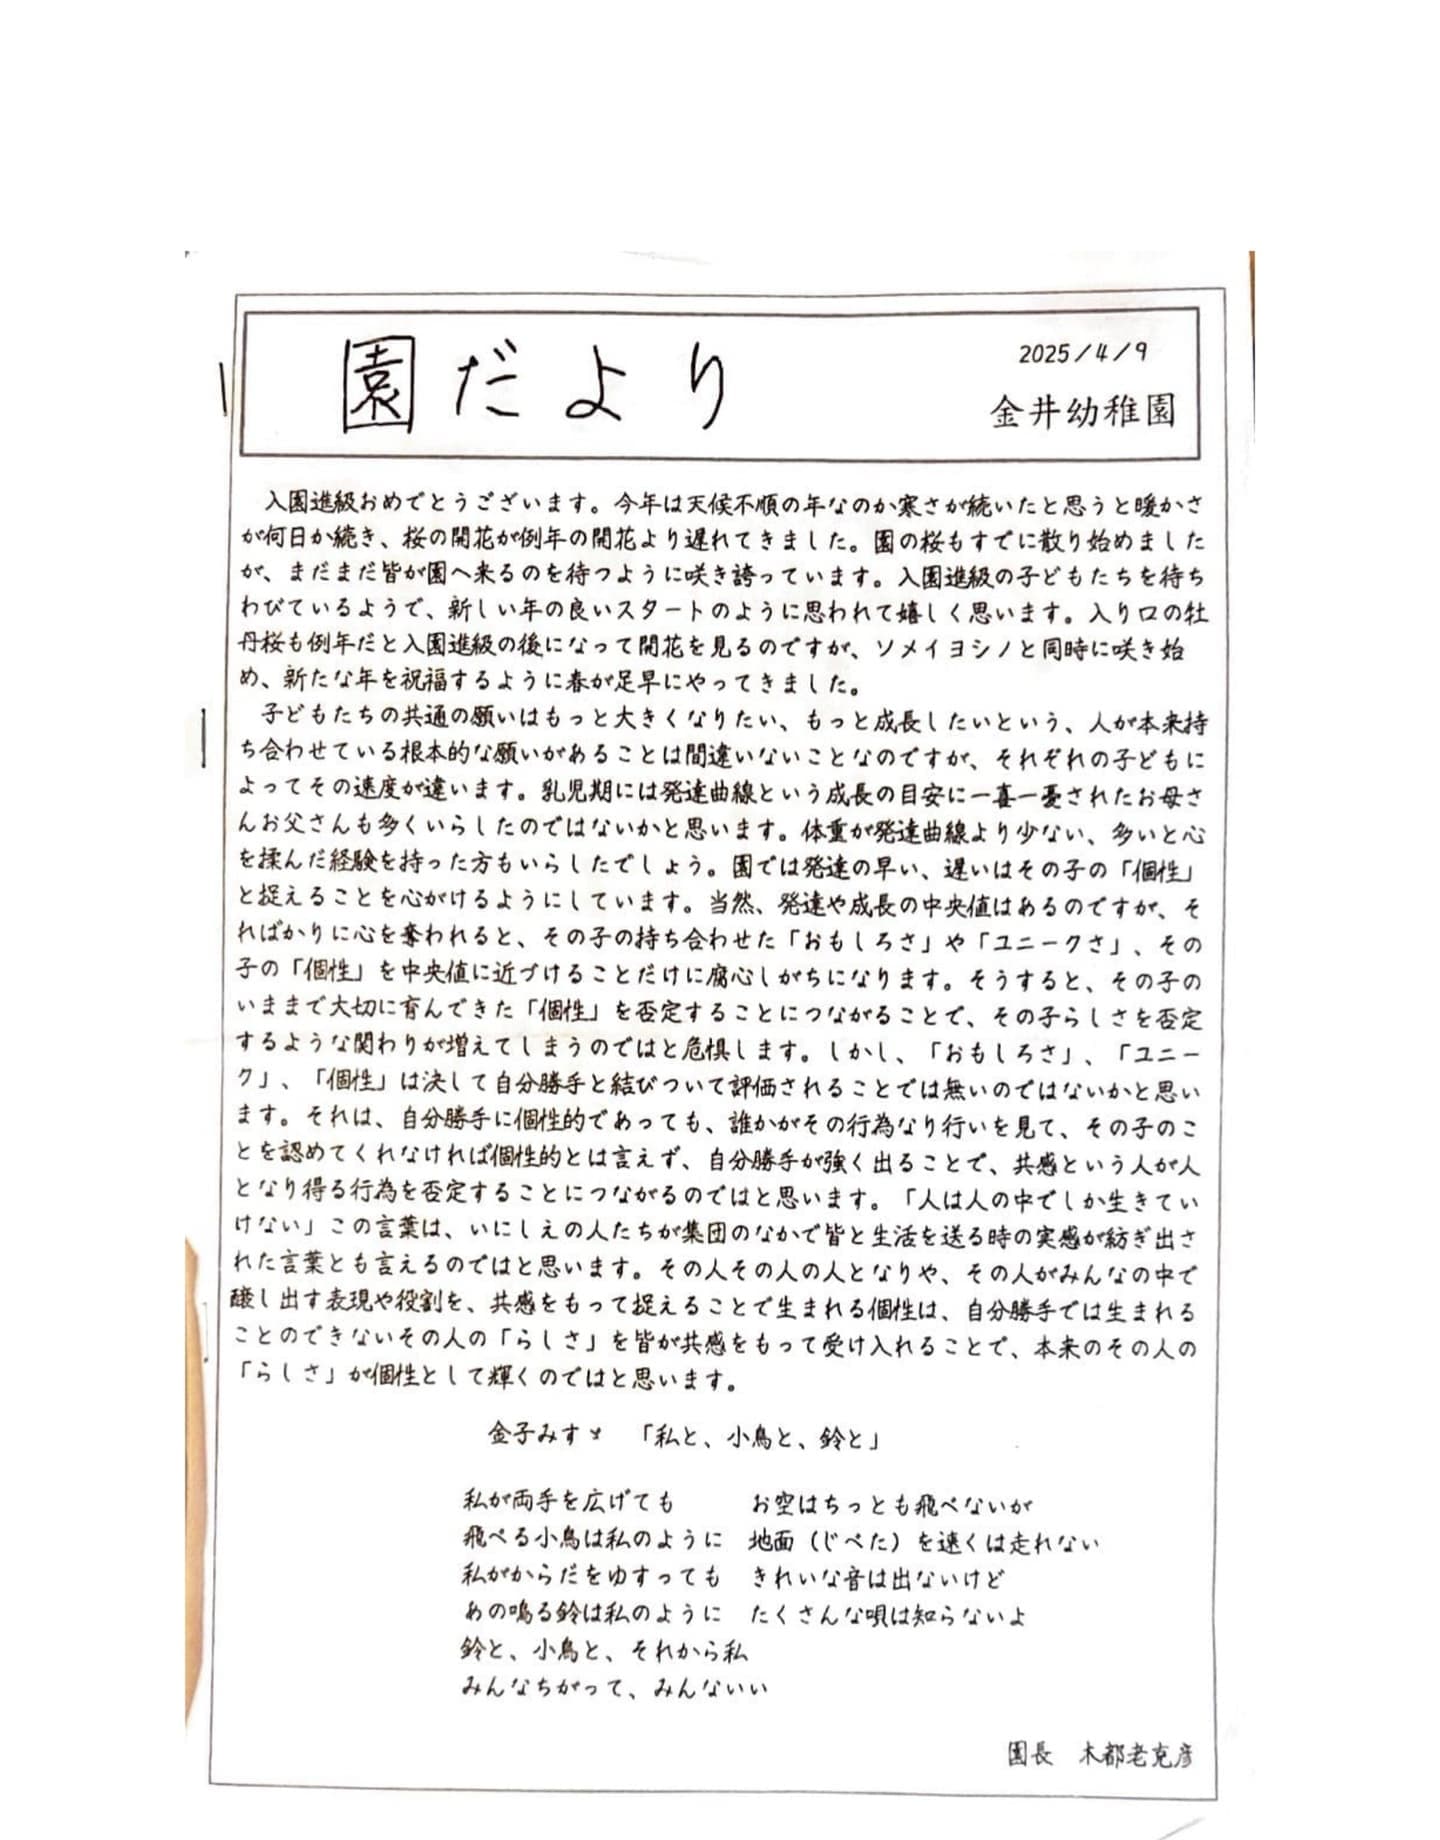 園だより
2025/4/9
金井幼稚園
入園進級おめでとうございます。今年は天候不順の年なのか寒さが続いたと思うと暖かさ
が何日か続き、桜の開花が例年の開花より遅れてきました。園の桜もすでに散り始めました
が、まだまだ皆が園へ来るのを待つように咲き誇っています。入園進級の子どもたちを待ち
わびているようで、新しい年の良いスタートのように思われて嬉しく思います。入り口の牡
丹桜も例年だと入園進級の後になって開花を見るのですが、ソメイヨシノと同時に咲き始
め、新たな年を祝福するように春が足早にやってきました。
子どもたちの共通の願いはもっと大きくなりたい、もっと成長したいという、人が本来持
ち合わせている根本的な願いがあることは間違いないことなのですが、それぞれの子どもに
よってその速度が違います。乳児期には発達曲線という成長の目安に一喜一憂されたお母さ
んお父さんも多くいらしたのではないかと思います。体重が発達曲線より少ない、多いと心
を揉んだ経験を持った方もいらしたでしょう。園では発達の早い、遅いはその子の「個性」
と捉えることを心がけるようにしています。当然、発達や成長の中央値はあるのですが、そ
ればかりに心を奪われると、その子の持ち合わせた「おもしろさ」や「ユニークさ」、その
子の「個性」を中央値に近づけることだけに腐心しがちになります。そうすると、その子の
いままで大切に育んできた「個性」を否定することにつながることで、その子らしさを否定
するような関わりが増えてしまうのではと危惧します。しかし、「おもしろさ」、「ユニー
ク」、「個性」は決して自分勝手と結びついて評価されることでは無いのではないかと思い
ます。それは、自分勝手に個性的であっても、誰かがその行為なり行いを見て、その子のこ
とを認めてくれなければ個性的とは言えず、自分勝手が強く出ることで、共感という人が人
となり得る行為を否定することにつながるのではと思います。「人は人の中でしか生きてい
けない」この言葉は、いにしえの人たちが集団のなかで皆と生活を送る時の実感が紡ぎ出さ
れた言葉とも言えるのではと思います。その人その人の人となりや、その人がみんなの中で
醸し出す表現や役割を、共感をもって捉えることで生まれる個性は、自分勝手では生まれる
ことのできないその人の「らしさ」を皆が共感をもって受け入れることで、本来のその人の
「らしさ」が個性として輝くのではと思います。
金子みすゞ 「私と、小鳥と、鈴と」
私が両手を広げても お空はちっとも飛べないが
飛べる小鳥は私のように 地面（じべた）を速くは走れない
私がからだをゆすっても きれいな音は出ないけど
あの鳴る鈴は私のように たくさんな唄は知らないよ
鈴と、小鳥と、それから私
みんなちがって、みんないい
園長 木都老克彦